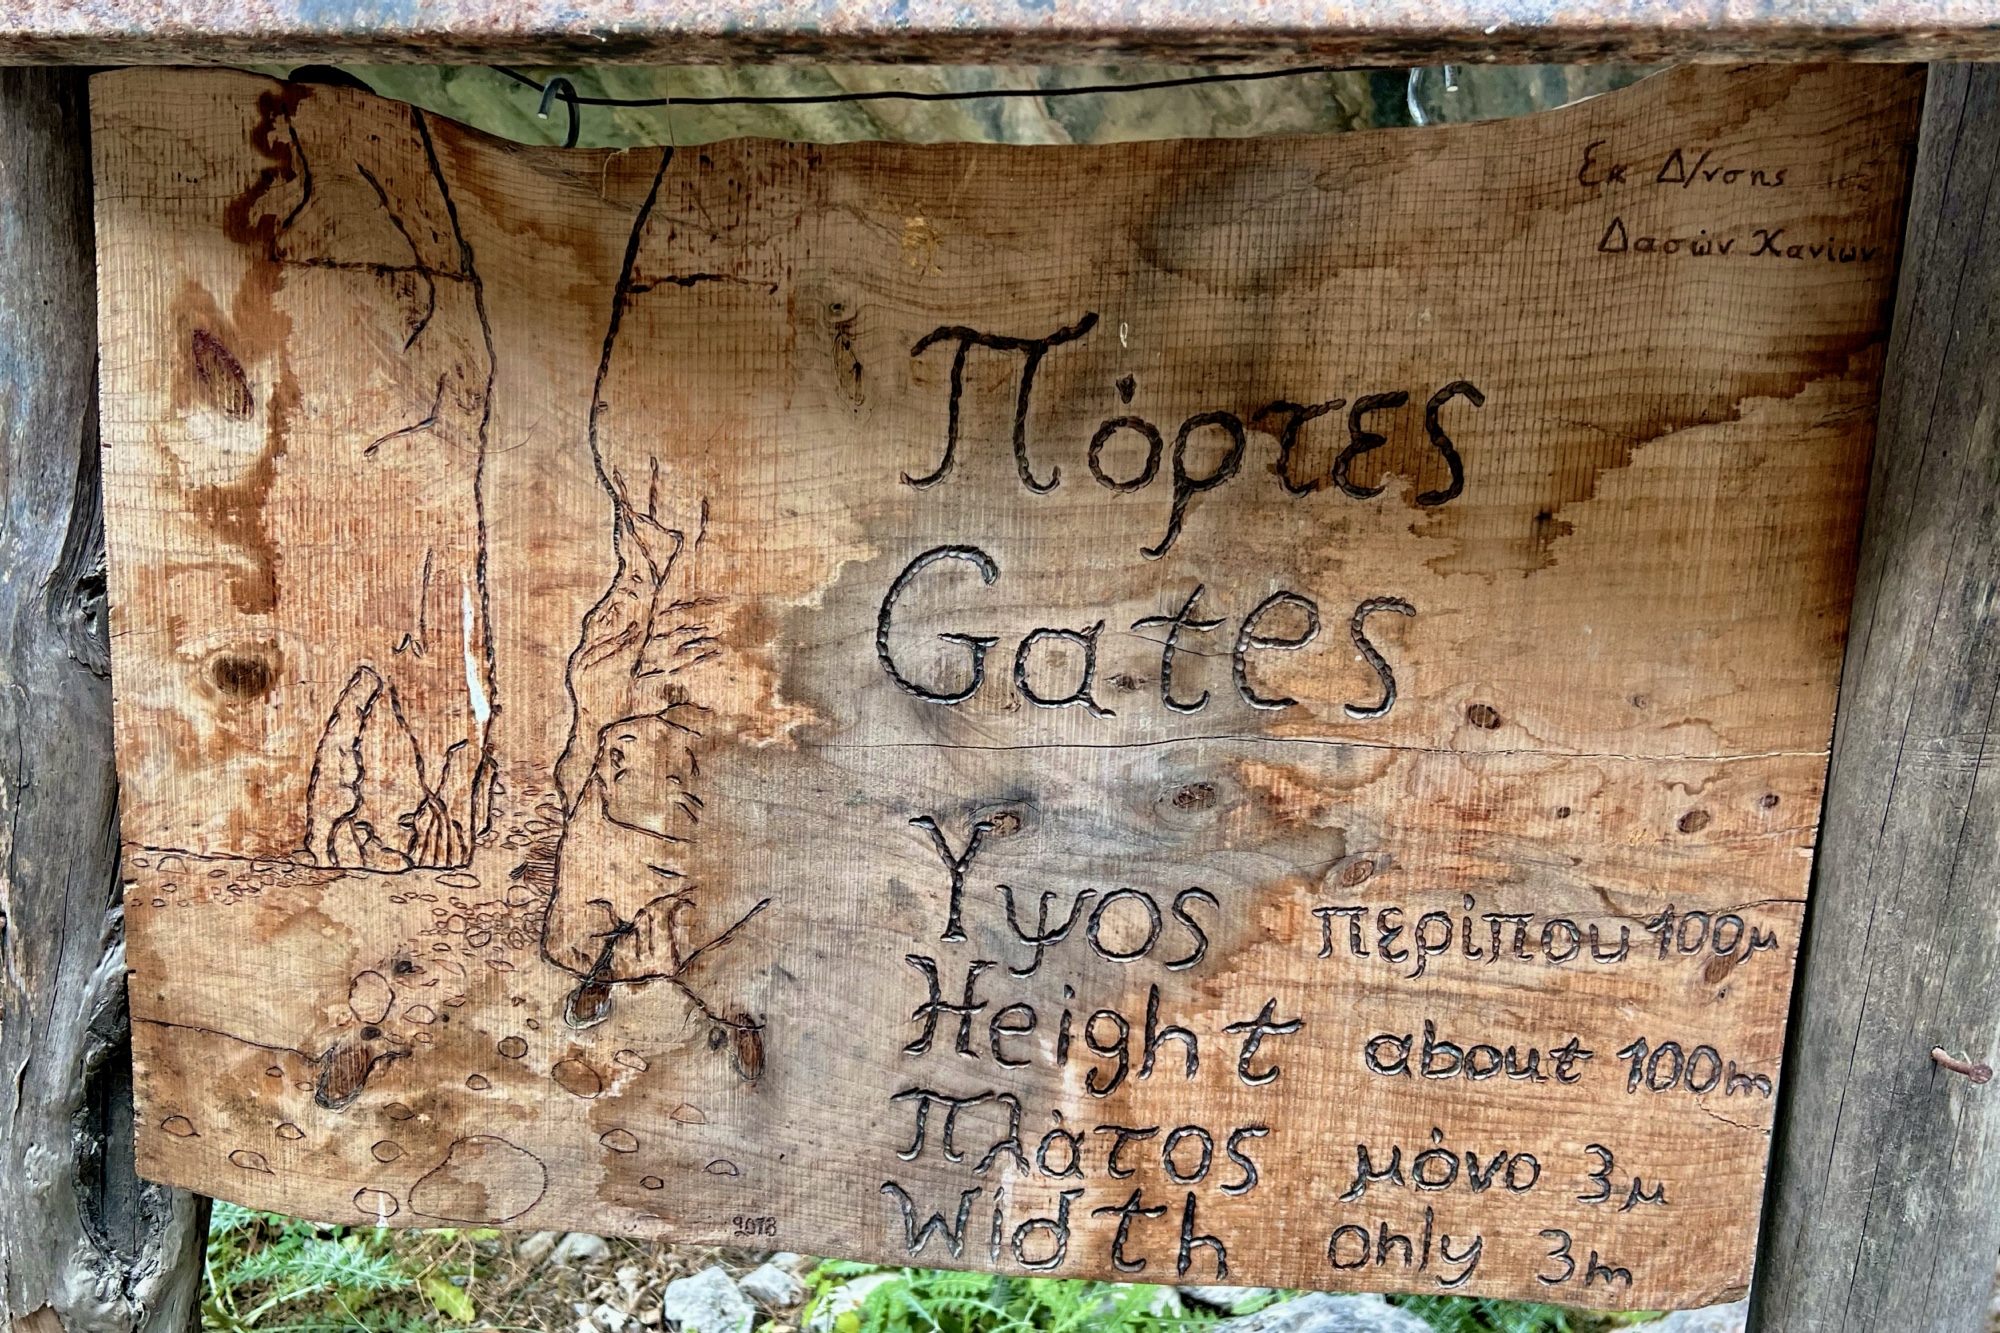 Εκ Δ/νσης
Δασών Χανίων
Πόρτες
Gates
Υψος περίπου 100μ
Height about 100m
Πλάτος μόνο 3μ
Width only 3m
2018